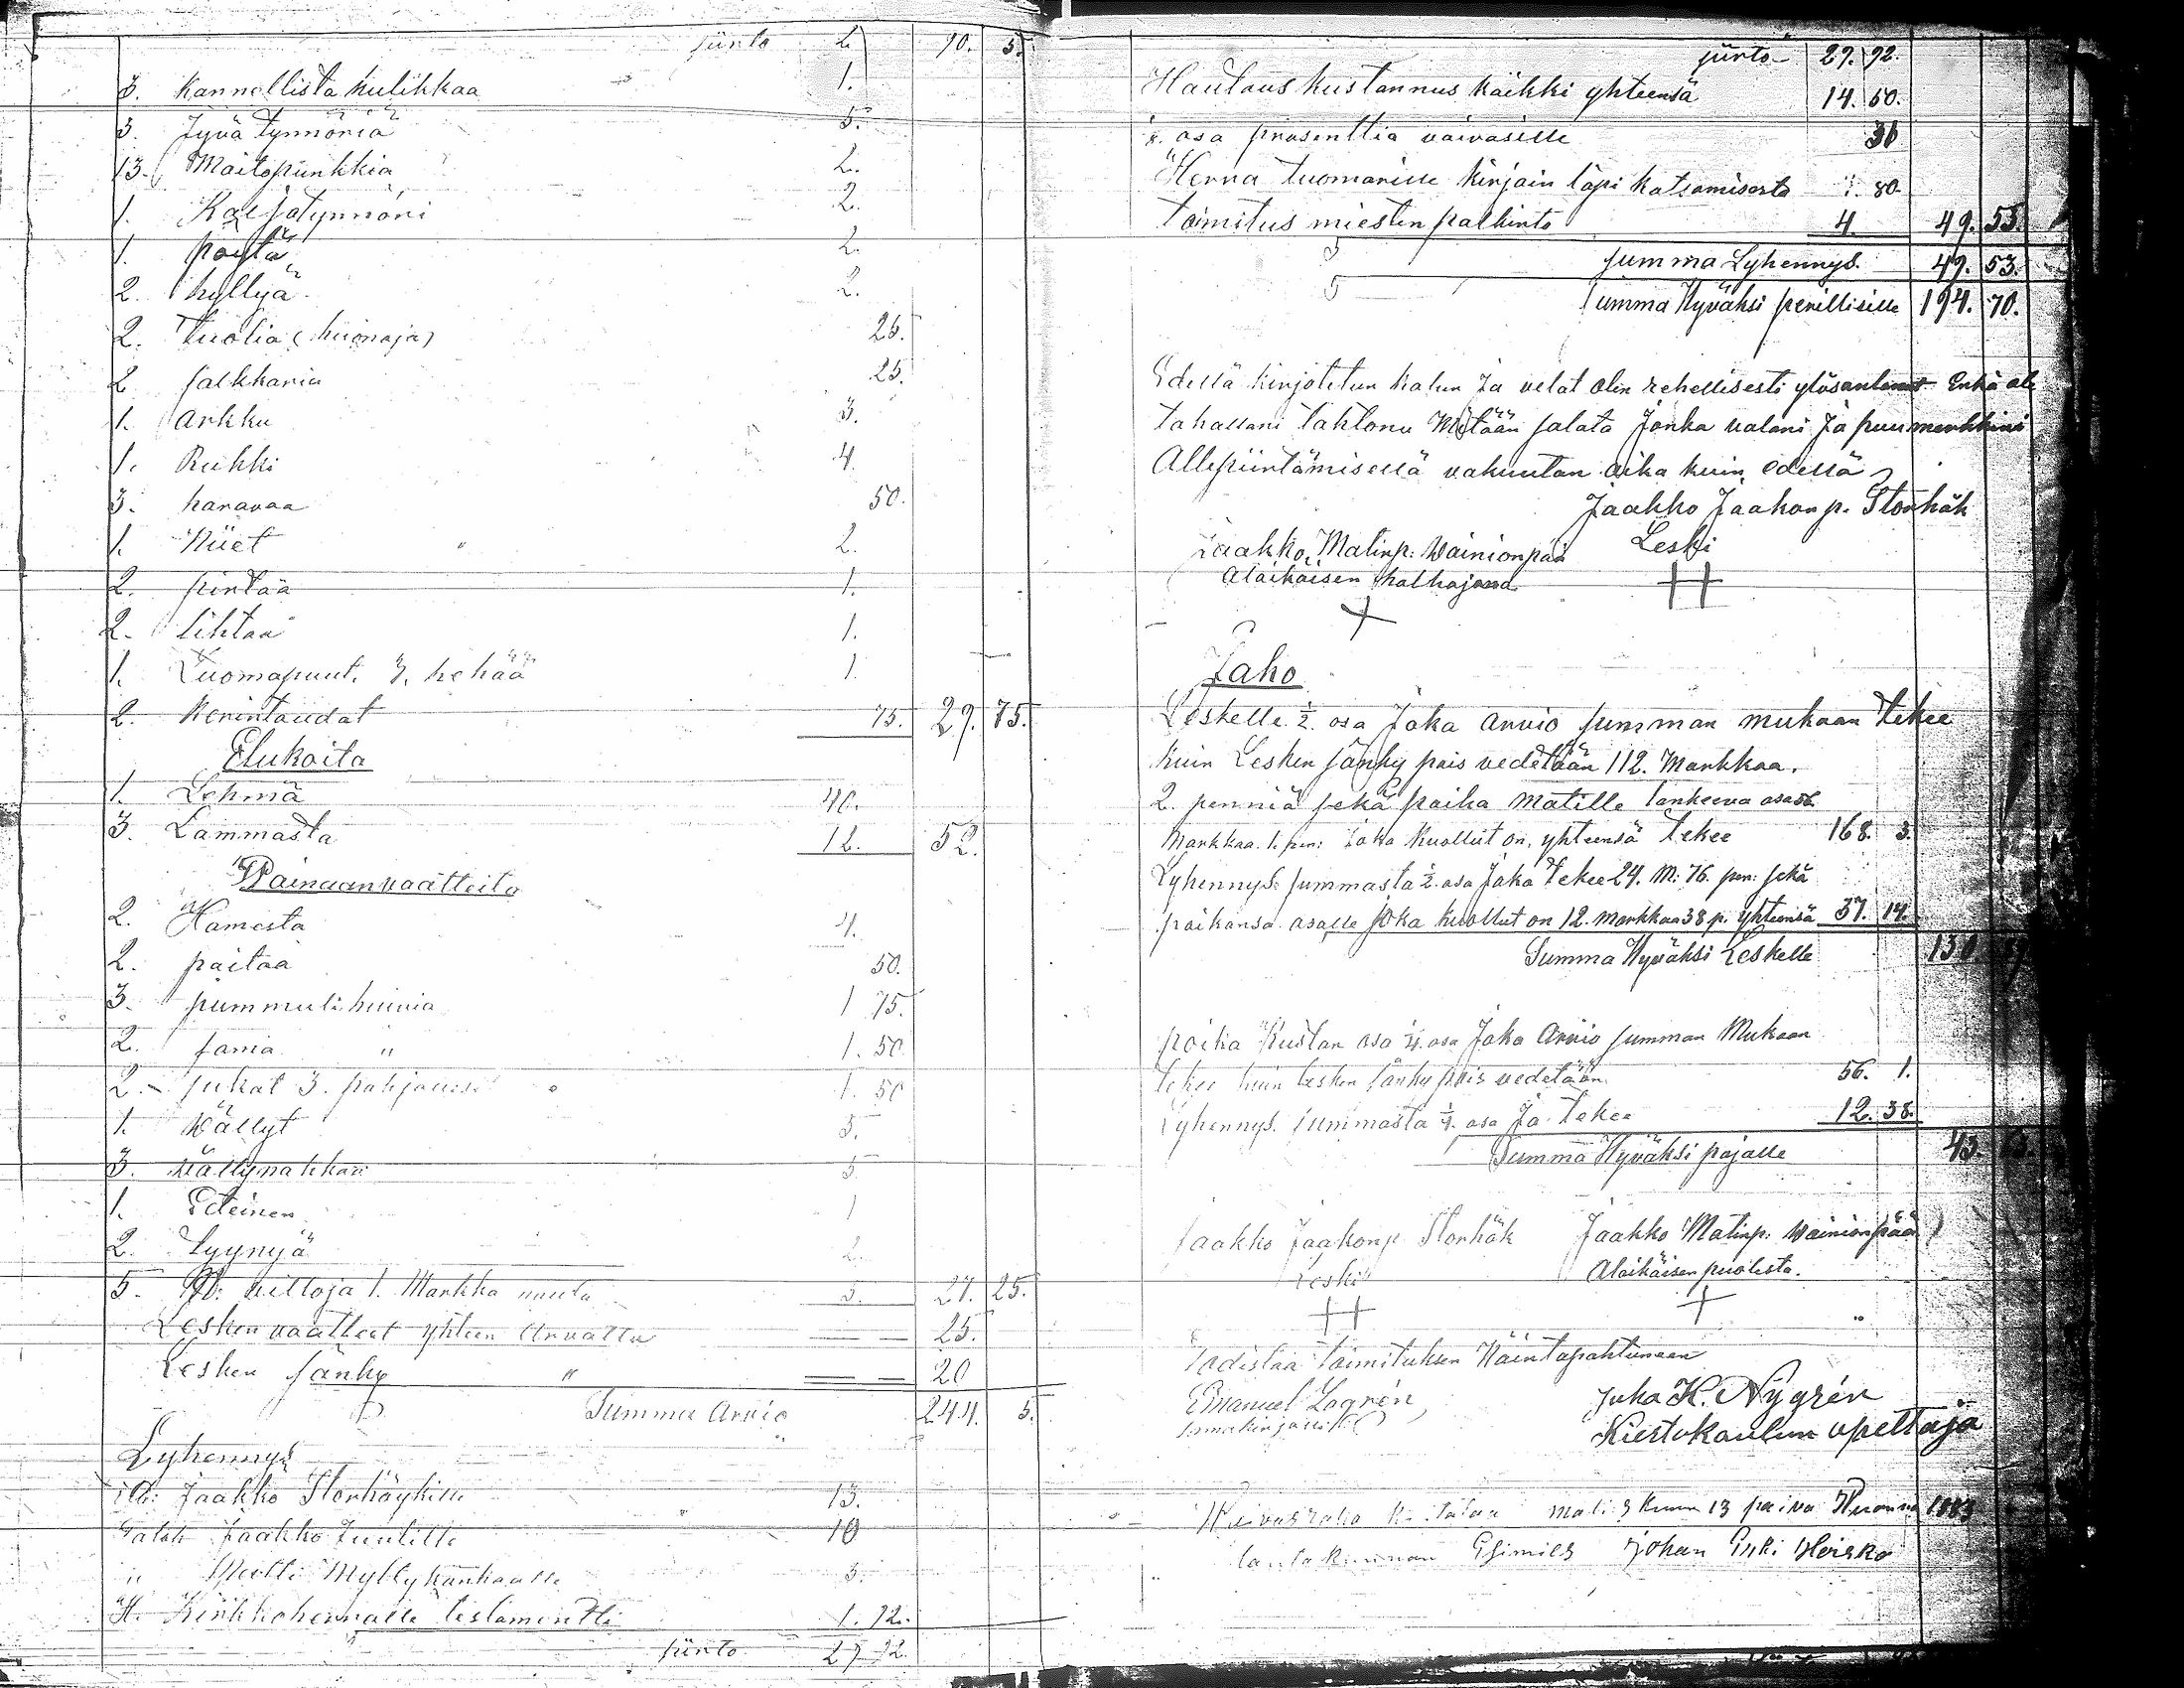 siirto 2. 90. 5.
3. Kannellista kulikkaa 1.
3. Jyvä tynnöriä 5.
13. Maitopunkkia 2.
1. Kaljatynnöri 2.
1. pöytä 2.
2. hyllyä 2.
2. tuolia (huonoja) 25.
2 falkkaria 25.
1. Arkku 3.
1. Rukki 4.
3. haravaa 50.
1. Niiet 2.
2. pirtaa 1.
2. lihtaa 1.
1. Luomapuut. 3. kehää 1.
2. Kerintaudat 75. 29. 75.
Elukoita
1. Lehmä 40.
3. Lammasta 12. 52.
Wainaan vaatteita
2. Hamesta 4.
2. paitaa 50.
3. pummuli huivia 1 75.
2. fania " 1. 50
2. sukat 3. 1. 50
1. Wällyt 5.
3. Wällynahkaa 5
1. Eteinen 1
2. Tyynyä 2.
5. villoja 1. Markka 5. 27. 25.
Lesken vaatteet yhteen Arvattu 25.
Lesken sänky " 20
Summa Arvio 244. 5.
Lyhennys
Jaakko Storhöykille 13.
Talok Jaakko Juutille 10
" Matti Myllykankaalle 3.
H. Kirkkoherralle testamentti 1. 92.
siirto 29 92.
siirto 29. 92.
Hautaus kustannus kaikki yhteensä 14. 50.
1/8. osa prosenttia vaivasille 31
Herra tuomarille kirjain läpi katsomisesta 80.
toimitus miesten palkinto 4. 49. 53.
Summa Lyhennys. 49. 53.
Summa Hyväksi perillisille 194. 70.
Edellä kirjotetun kalun Ja velat olen rehellisesti ylösantanut Enkä ole
tahallani tahtonu Mitään salata Jonka valani Ja puumerkkini
Allepiirtämisellä vakuutan aika kuin edellä
Jaakko Jaakon p. Storhök
Jaakko Matinp: Wainionpää Leski
Alaikäisen halhojana
Jako
Leskelle 1/2. osa Joka Arvio summan mukaan tekee
kuin Lesken sänky pois vedetään 112. Markkaa.
2. penniä sekä poika Matille lankeeva osa 56.
Markkaa. 1. pen: Joka kuollut on, yhteensä tekee 168. 3.
Lyhennys summasta 1/2. osa Joka tekee 24. M: 76. pen: sekä
poikansa osalle joka kuollut on 12. markkaa 38 p. yhteensä 37. 14.
Summa Hyväksi Leskelle 130.
poika Kustan osa 1/4. osa Joka Arvio summan Mukaan
tekee kuin lesken sänky pois vedetään 56. 1.
Lyhennys. summasta 1/4. osa Ja tekee 12. 38.
Summa Hyväksi pojalle 43.
Jaakko Jaakonp Storhök Jaakko Matinp: Wainionpää
Leski Alaikäisen puolesta.
Todistaa toimituksen Näin tapahtuneen
Emanuel Lagrén, Juha H. Nygrén
Kiertokoulun opettaja
13 päivä 1883
lautakunnan Esimies Johan Erki Heisko